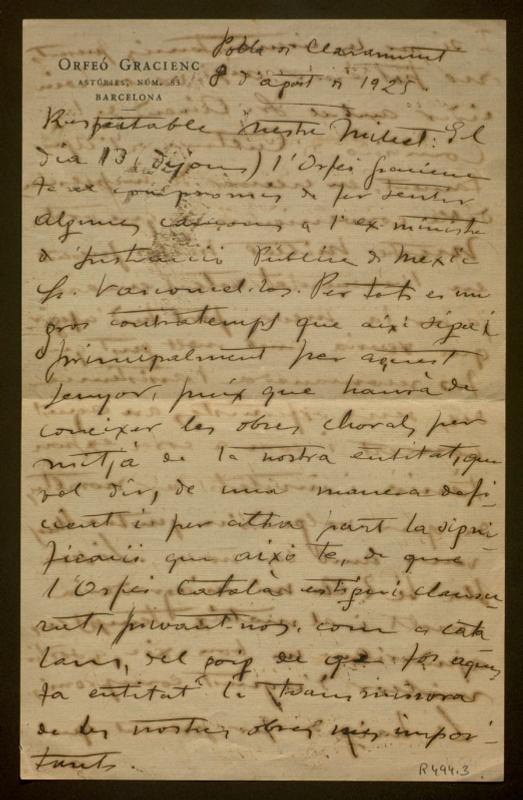 ORFEÓ GRACIENC
ASTÚRIES, NÚM. 83
BARCELONA
Pobla de Claramunt
8 d'agost de 1925.
Respectable mestre Millet: El
dia 13 (dijous) l'Orfeó Gracienc
té el compromís de fer sentir
algunes cançons a l'ex ministre
d'Instrucció Pública de Mexic
Sr. Vasconcellos. Per tots es un
gros contratemps que així sigui i
principalment per aquest
senyor, puix que haurà de
coneixer les obres chorals per
mitjà de la nostra entitat, que
vol dir, de una manera defi-
cient i per altra part la signi-
ficació que això té, de que
l'Orfeó Català estigui clausu-
rat, privant-nos, com a cata
lans, del goig de que fos aques
ta entitat la transmissora
de les nostres obres més impor-
tants.
R 494.3